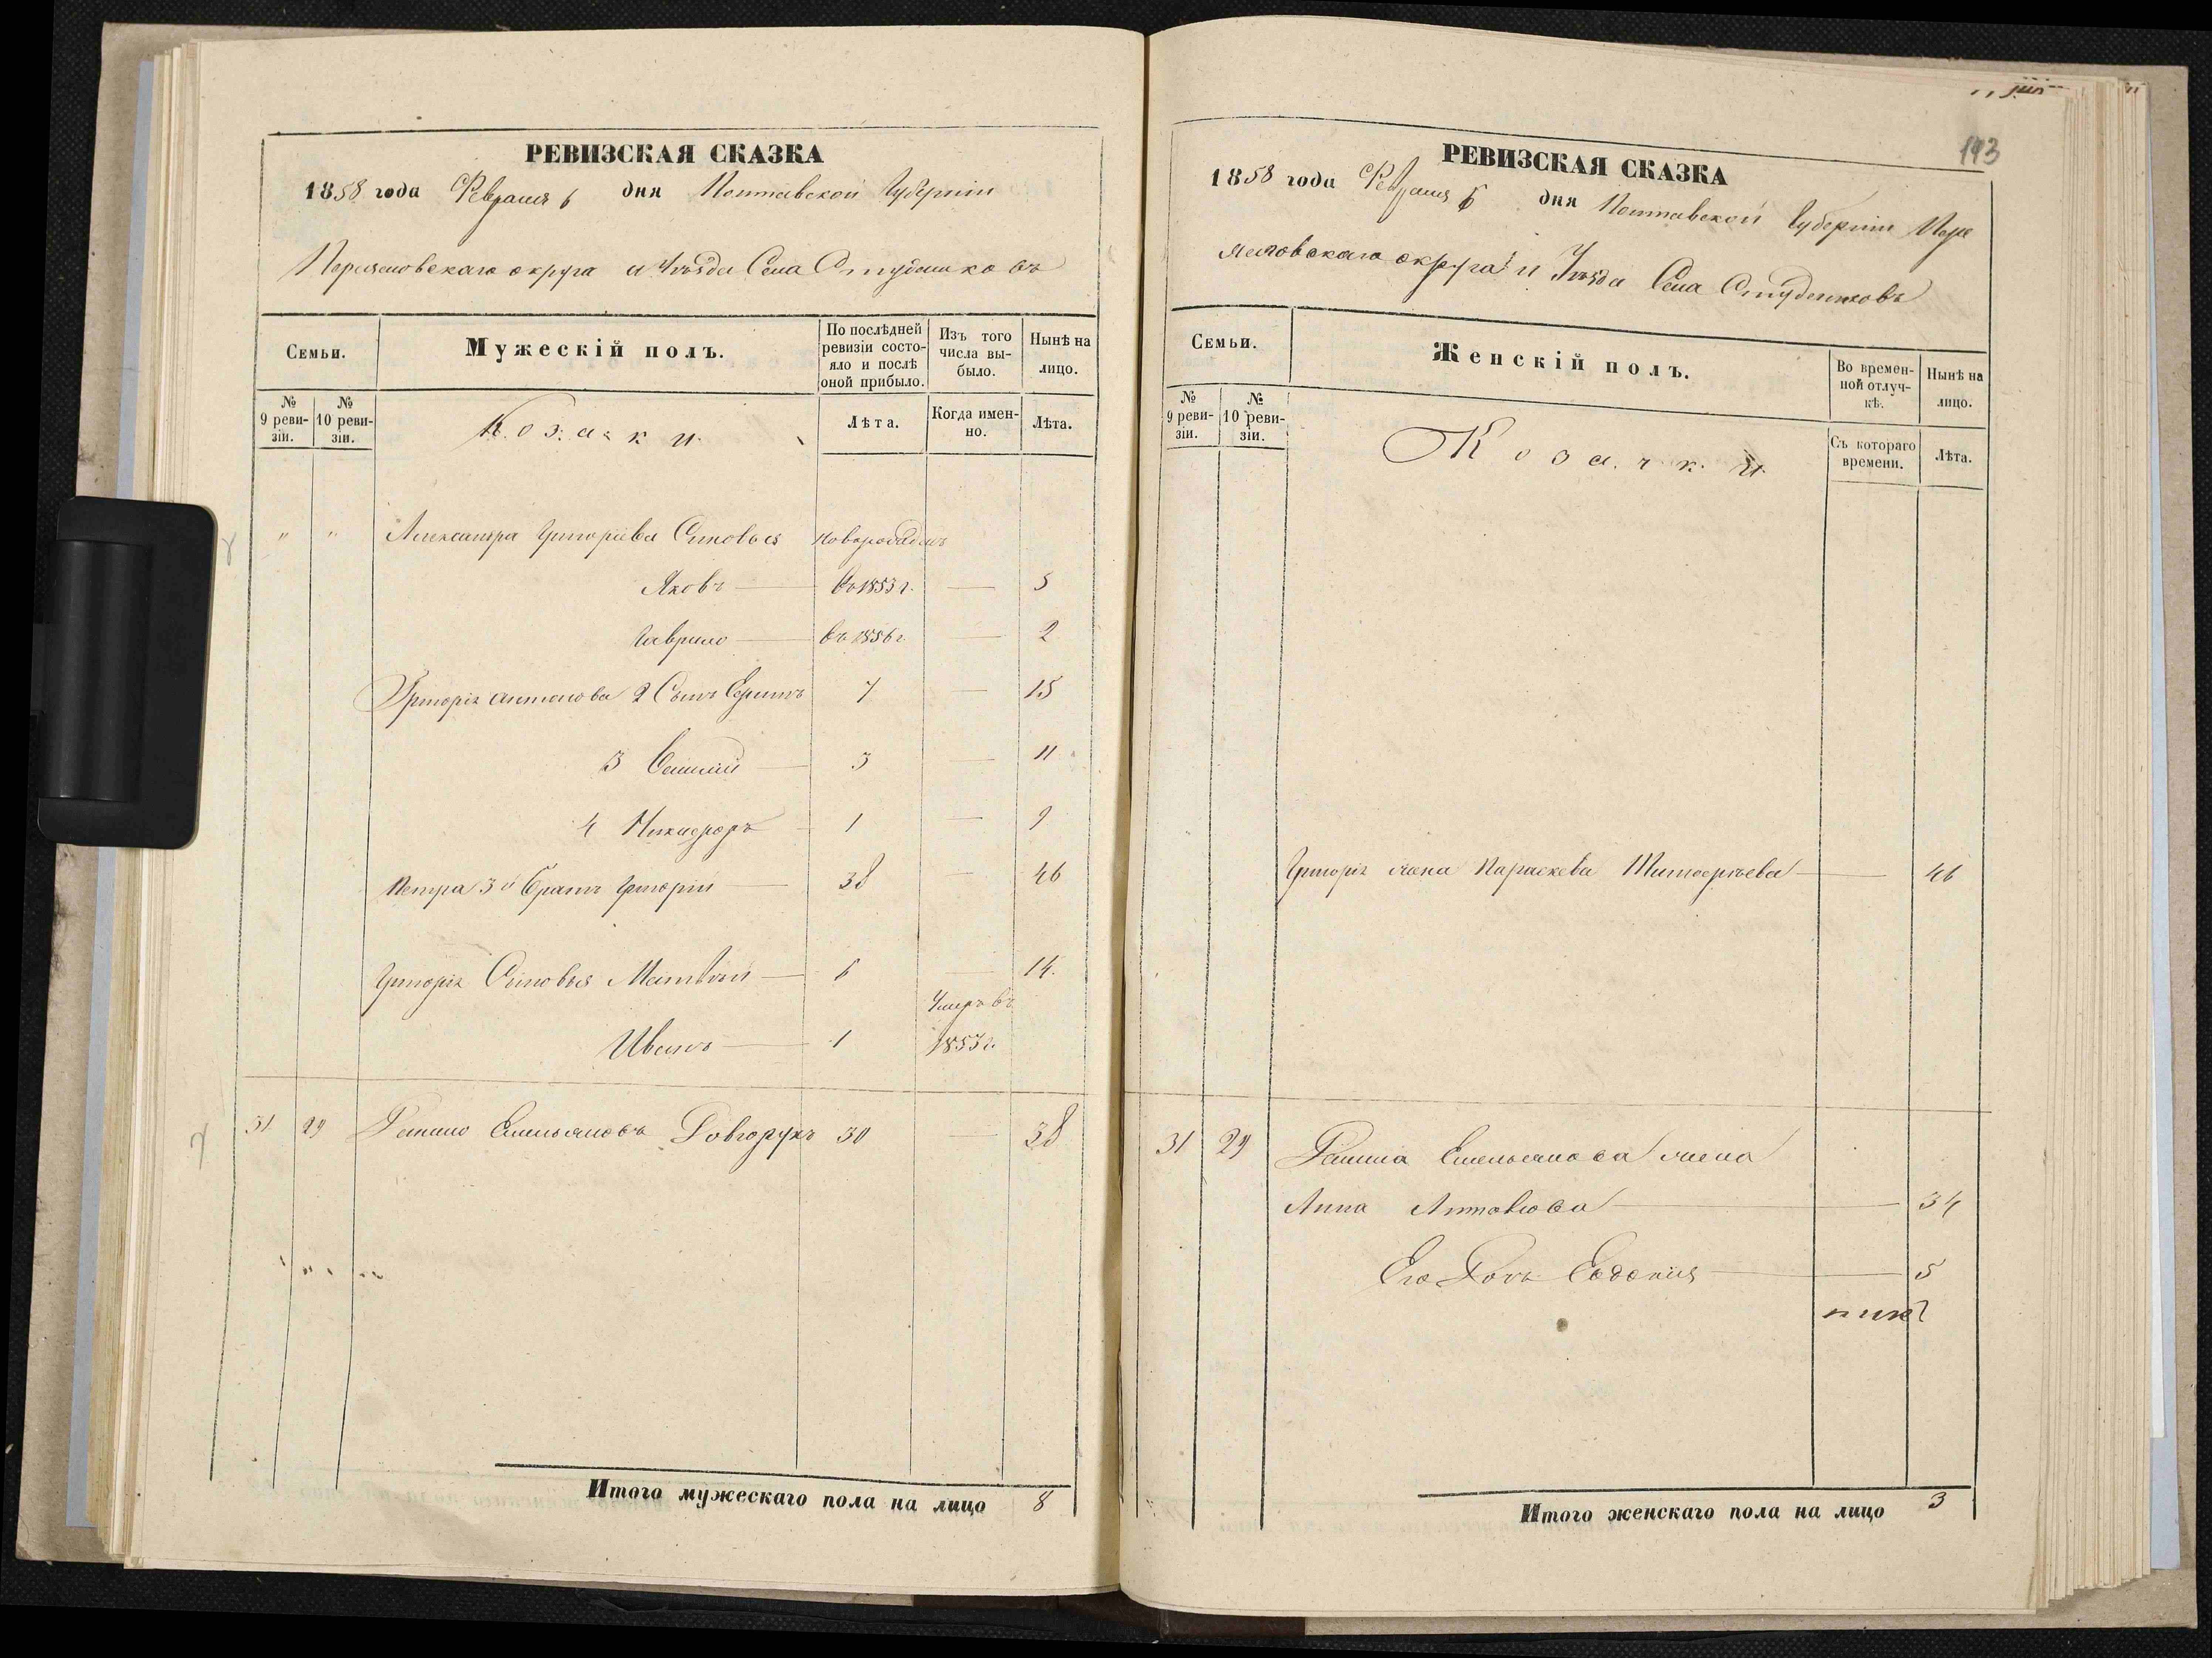 РЕВИЗСКАЯ СКАЗКА
1858 года Февраля 6 дня Полтавской Губерніи
Переяславскаго округа и Уѣзда Села Студениковъ
Семьи.
Мужескій полъ.
По послѣдней ревизіи состояло и послѣ оной прибыло.
Изъ того числа выбыло.
Нынѣ на лицо.
№ 9 ревизіи.
№ 10 ревизіи.
Козаки
Лѣта.
Когда именно.
Лѣта.
" " Александра Григоріева Синовья новорожден
Яковъ въ 1853 г. — 5
Гаврило въ 1856 г. — 2
Григорія Антонова 2 Сынъ 7 — 15
3 3 — 11
4 Никифоръ 1 — 9
Петра 3й братъ Григорій 38 — 46
Григорія Синовья Матвѣй 6 — 14.
Умеръ въ
Иванъ 1 1853 г.
31 29 Данило Емельяновъ Довгорукъ 30 — 38
Итого мужескаго пола на лицо 8
193
РЕВИЗСКАЯ СКАЗКА
1858 года Февраля 6 дня Полтавской Губерніи Пере
яславскаго округа и Уѣзда Села Студениковъ
Семьи.
Женскій полъ.
Во временной отлучкѣ.
Нынѣ на лицо.
№ 9 ревизіи.
№ 10 ревизіи.
Козачки
Съ котораго времени.
Лѣта.
Григорія жена Параскева Тимофѣева — 46
31 29 Данила Емельянова жена
Анна — 34
Его Дочь Евдокія — 5
Итого женскаго пола на лицо 3